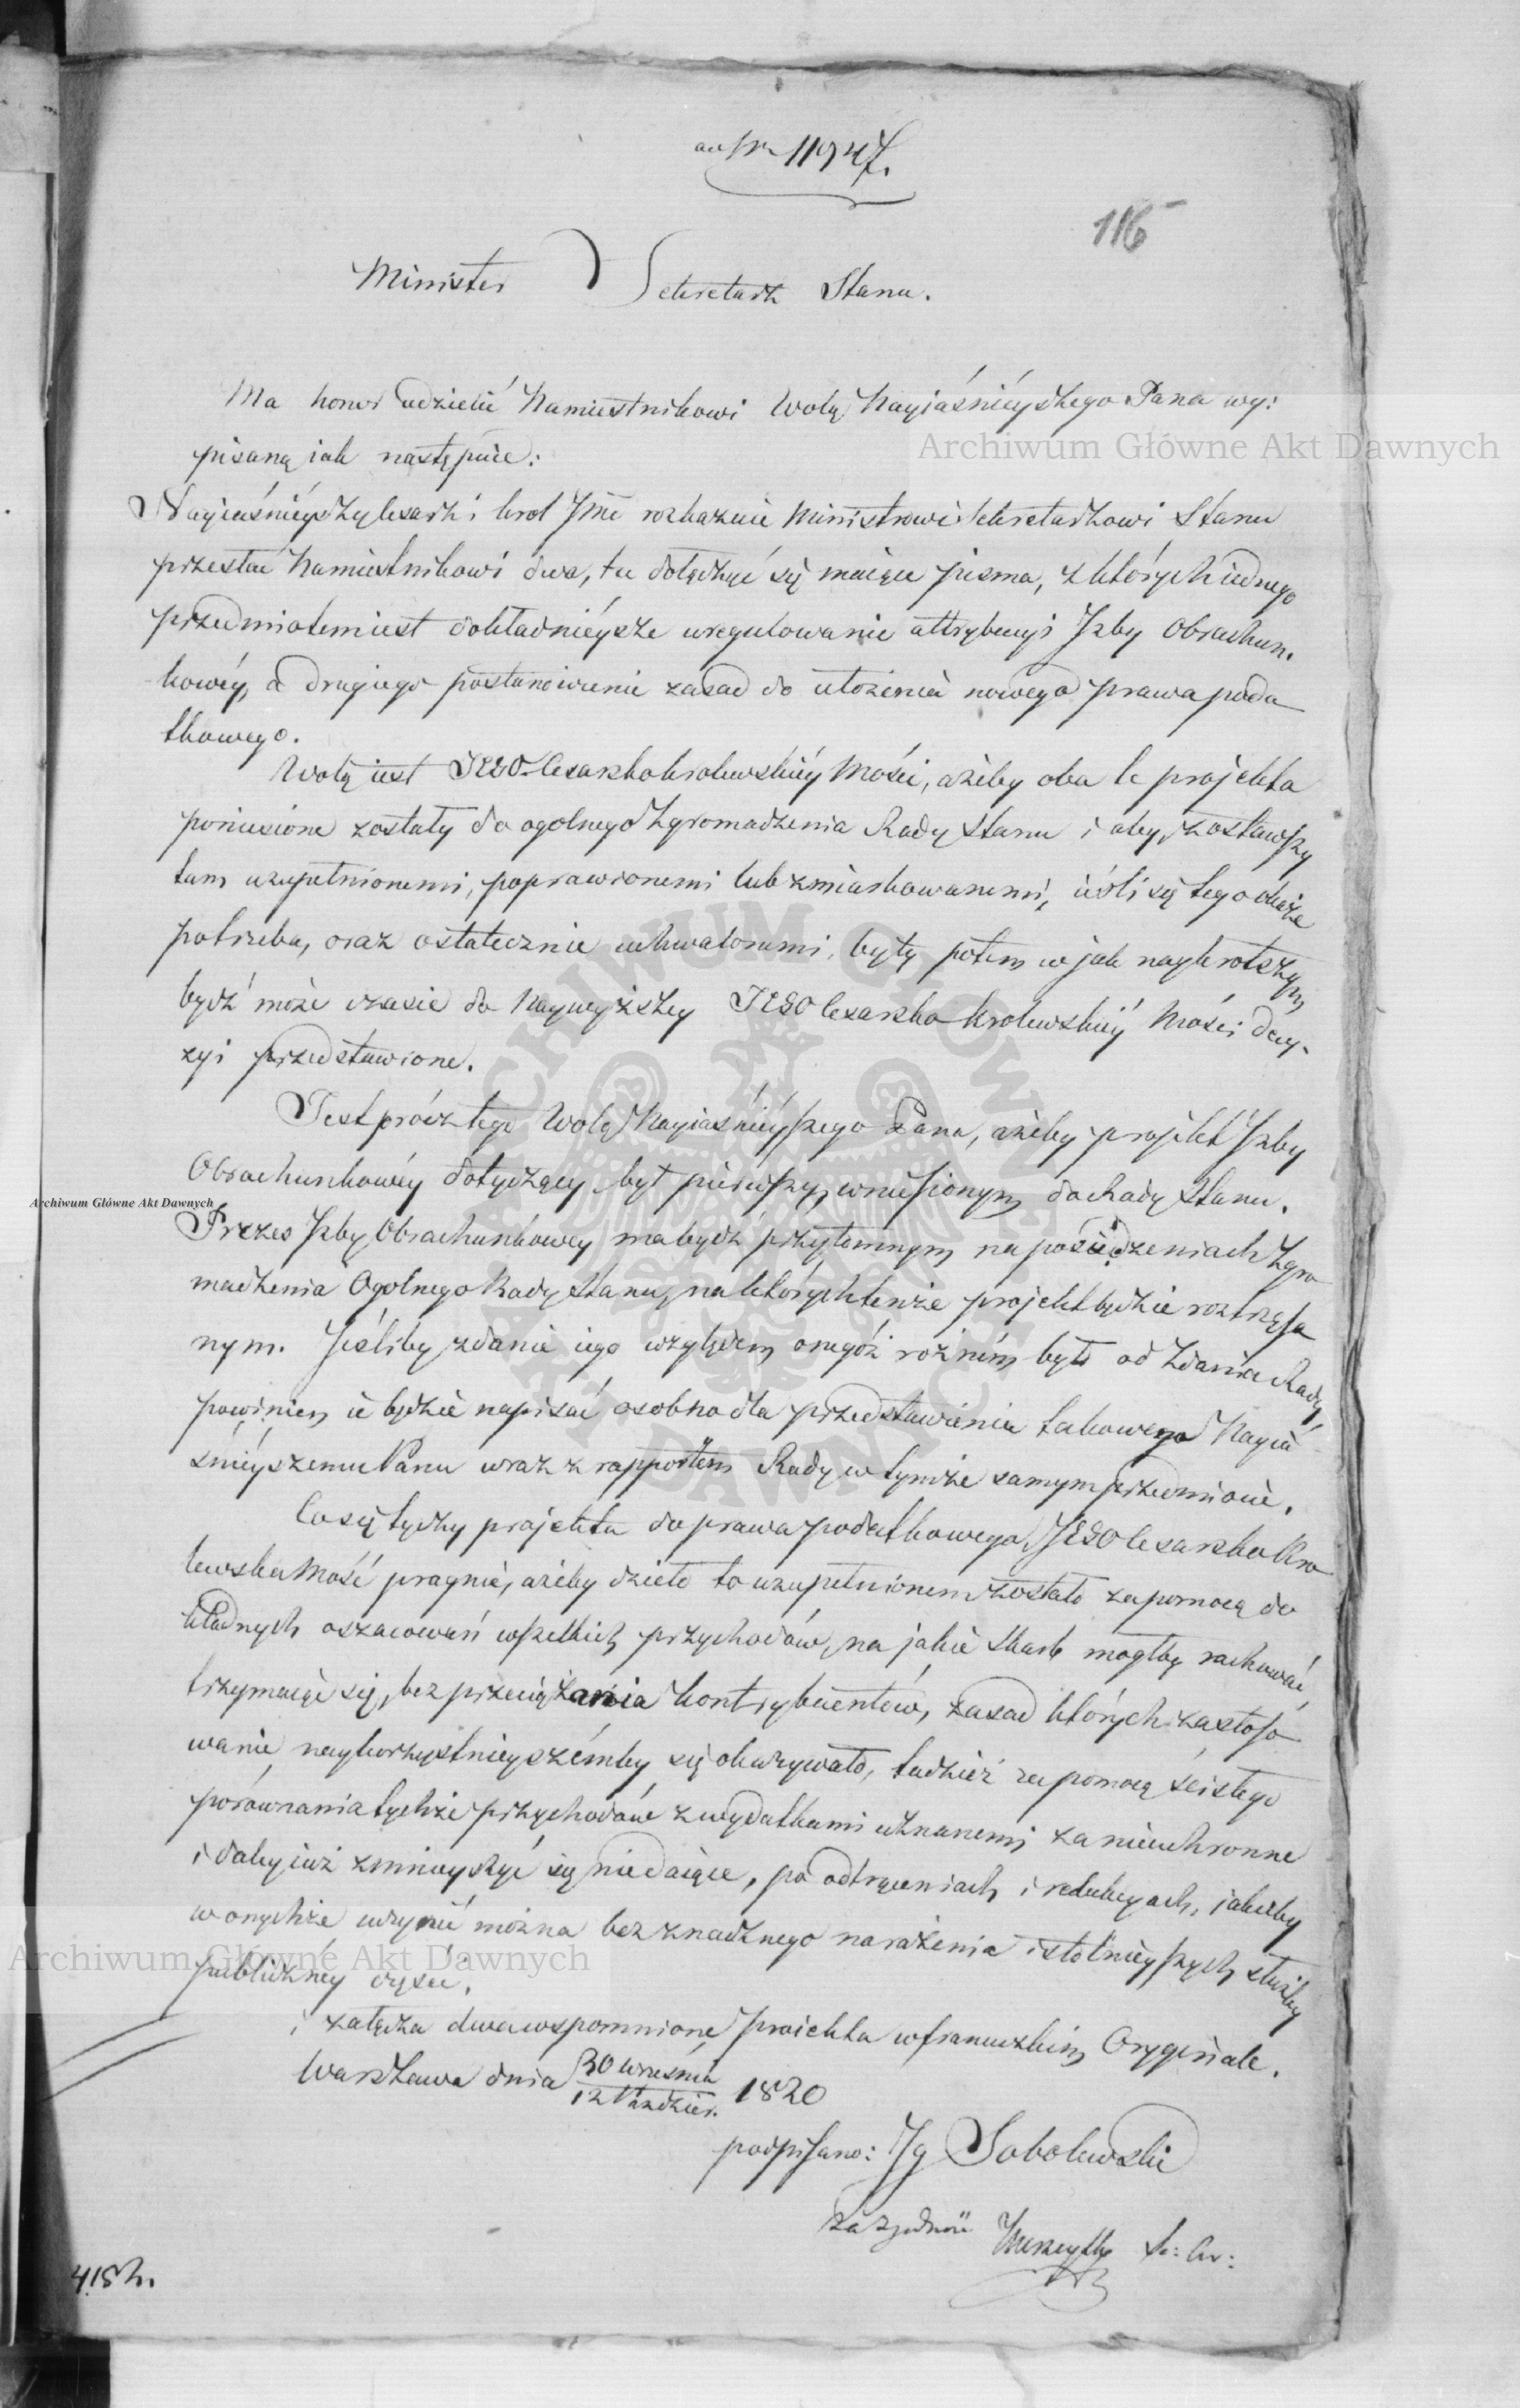 ad Nr 11947.
116
Minister Sekretarz Stanu.
Ma honor udzielić Namiestnikowi Wolą Nayiaśnieyszego Pana wy:
pisaną iak następuie:
Nayiaśnieyszy Cesarz i Krol Jmć rozkazuie Ministrowi Sekretarzowi Stanu
przesłać Namiestnikowi dwa, tu dołączyć się maiące pisma, z których iednego
przedmiotem iest dokładnieysze uregulowanie attrybucyi Izby Obrachun.
kowéy, a drugiego postanowienie zasad do ułożenia nowego prawa poda
tkowego.
Wolą iest JEGO Cesarsko Krolewskiéy Mości, ażeby oba te projekta
poniesione zostały do ogolnego Zgromadzenia Rady Stanu i aby, zostawszy
tam uzupełnionemi, poprawionemi lub zmiarkowanemi, ieśli się tego okaże
potrzeba, oraz ostatecznie uchwalonemi, były potem w jak naykrotszym
bydź może czasie do Naywyższey JEGO Cesarsko Krolewskiéy Mości decy-
zyi przedstawione.
Jest prócz tego Wolą Nayiaśnieyszego Pana, ażeby projekt Izby
Obrachunkowéy dotyczący był pierwszym wniesionym do Rady Stanu.
Prezes Izby Obrachunkowey ma bydź przytomnym na posiedzeniach Zgro
madzenia Ogolnego Rady Stanu, na których tenże projekt będzie roztrząsa
nym. Jeśliby zdanie iego względem onegóż rożném było od zdania Rady,
powinien ie będzie napisać osobno dla przedstawienia takowego Nayia
śnieyszemu Panu wraz z rapportem Rady w tymże samym przedmiocie.
Co się tyczy projektu do prawa podatkowego, JEGO Cesarsko Kro
lewska Mość pragnie, ażeby dzieło to uzupełnionem zostało za pomocą do
kładnych oszacowań wszelkich przychodów, na jakie Skarb mogłby rachować,
trzymaiąc się, bez przeciążania kontrybuentów, zasad których zastoso
wanie naykorzystnieyszémby się okazywało, tudzież za pomocą ścisłego
porównania tychże przychodów z wydatkami uznanemi za nieuchronne
i daley iuż zmnieyszyć się niedaiące, po odtrąceniach i redukcyach, iakieby
w onychże uczynić można bez znacznego narażenia istotnieyszych służby
publicznéy części.
i załącza dwa wspomnione proiekta w francuzkim Oryginale.
Warszawa dnia 30 Września / 12 Paździer. 1820
podpisano: Ig Sobolewski
Za zgodność
4152.
Archiwum Główne Akt Dawnych
Archiwum Główne Akt Dawnych
Archiwum Główne Akt Dawnych
ARCHIWUM GŁÓWNE AKT DAWNYCH